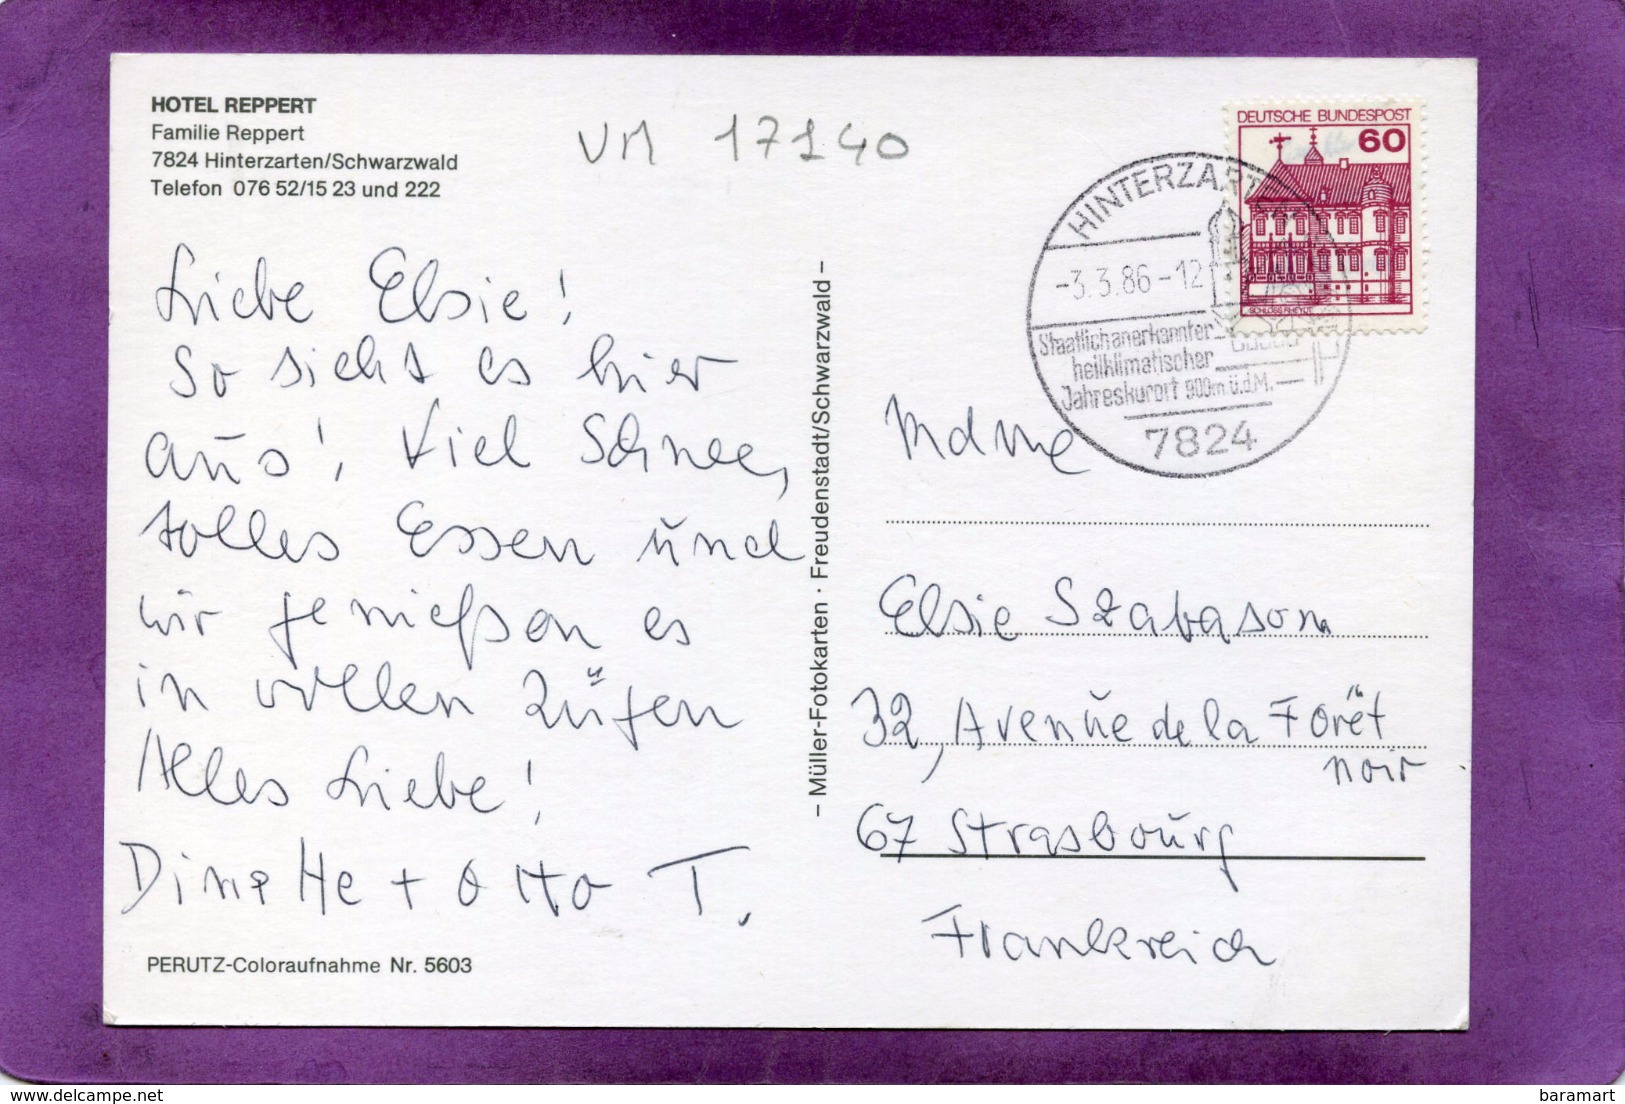 HOTEL REPPERT
Familie Reppert
7824 Hinterzarten/Schwarzwald
Telefon 076 52/15 23 und 222
VM 17140
DEUTSCHE BUNDESPOST
60
SCHLOSS RHEYDT
HINTERZARTEN
-3.3.86-12
Staatlich anerkannter
heilklimatischer
Jahreskurort 900m ü.d.M.
7824
Liebe Elsie!
So sieht es hier
aus! Viel Schnee,
tolles Essen und
wir genießen es
in vollen Zügen
Alles Liebe!
+ Otto T.
PERUTZ-Coloraufnahme Nr. 5603
– Müller-Fotokarten · Freudenstadt/Schwarzwald –
Mdme
Elsie Szabason
32, Avenue de la Forêt
noir
67 Strasbourg
Frankreich
baramart